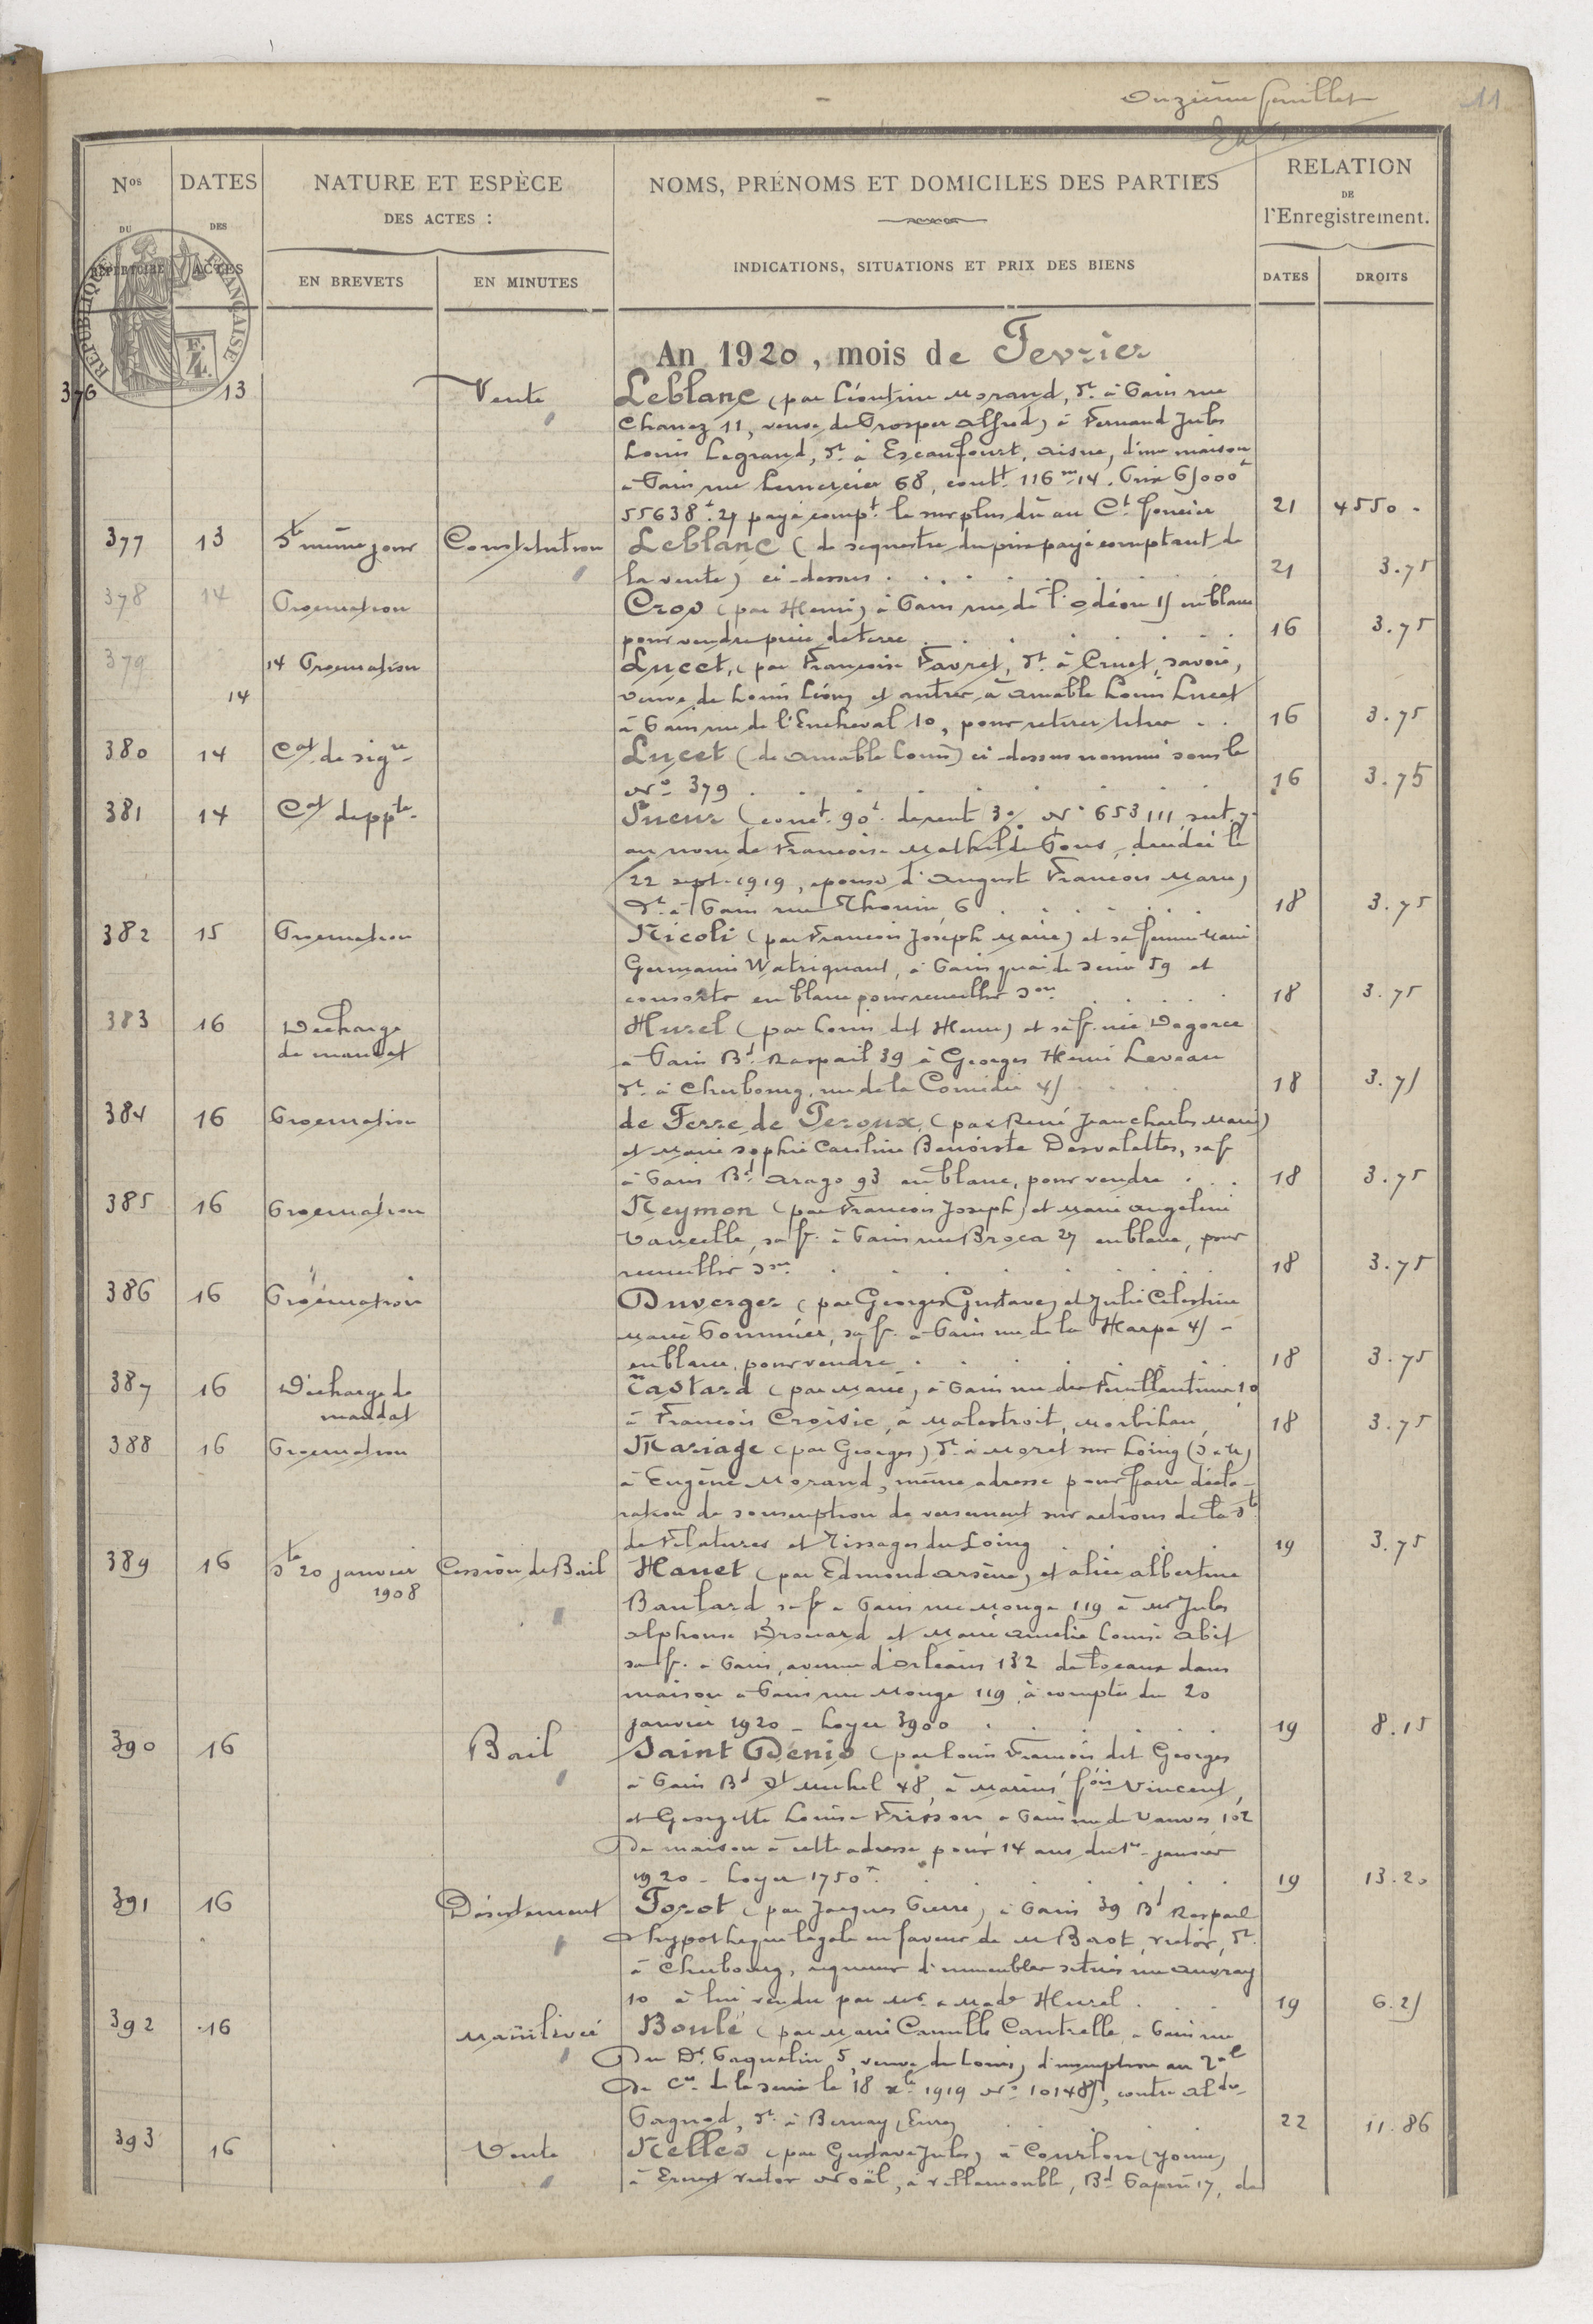 Onzième feuillet
11
Nos DU RÉPERTOIRE
DATES DES ACTES
NATURE ET ESPÈCE DES ACTES :
EN BREVETS
EN MINUTES
NOMS, PRÉNOMS ET DOMICILES DES PARTIES
INDICATIONS, SITUATIONS ET PRIX DES BIENS
RELATION DE l'Enregistrement.
DATES
DROITS
RÉPUBLIQUE FRANÇAISE
An 1920, mois de Fevrier
376 13 Vente Leblanc (par Léontine Morand, dt. à Paris rue
Chanez 11, veuve de Prosper Alfred) à Fernand Jules
Louis Legrand, dt. à Escaufourt, Aisne, d'une maison
à Paris rue Lemercier 68, contt. 116m.14. Prix 65000f
55638f.27 payé compt. le surplus dû au Ct foncier 21 4550.
377 13 St même jour Constitution Leblanc (de sequestre du prix payé comptant de
la vente) ci-dessus 21 3.75
378 14 Procuration Cros (par Henri) à Paris rue de l'Odéon 15 en blanc
pour vendre pièce de terre 16 3.75
379 14 Procuration Lucet, (par Françoise Favret, dt. à Cruet, Savoie,
14 veuve de Louis Léon) et autres à Amable Louis Lucet
à Paris rue de l'Encheval 10, pour retirer titres 16 3.75
380 14 Cat de sigre Lucet (de Amable Louis) ci dessus nommé sous le
No 379 16 3.75
381 14 Cat de ppté Sueur (conct. 90f. de rente 3% No 653111 sect. 7
au nom de Françoise Mathilde Pous, décédée le
22 sept. 1919, épouse d'August François Marie)
dt. à Paris rue Thouin 6 18 3.75
382 15 Procuration Nicoli (par François Joseph Marie) et sa femme Marie
Germaine Watriquant, à Paris quai de Seine 59 et
consorts en blanc pour recueillir son 18 3.75
383 16 Décharge de mandat Hurel (par Louis dit Henri) et sa f. née Dagorce
à Paris Bd. Raspail 39 à Georges Henri Leveau
dt. à Cherbourg, rue de la Comédie 45 18 3.75
384 16 Procuration de Ferre de Peroux, (par René Jean Charles Marie)
et Marie Sophie Caroline Benoiste Desvalettes, sa f.
à Paris Bd. Arago 93 en blanc, pour vendre 18 3.75
385 16 Procuration Neymon (par François Joseph) et Marie Angeline
Vancelle, sa f. à Paris rue Broca 27 en blanc, pour
recueillir son 18 3.75
386 16 Procuration Duverger (par Georges Gustave) et Julie Celestine
Marie Pommier, sa f. à Paris rue de la Harpe 45
en blanc, pour vendre 18 3.75
387 16 Décharge de mandat Tastard (par Marie) à Paris rue des Feuillantines 10
à François Croisic, à Malestroit, Morbihan 18 3.75
388 16 Procuration Mariage (par Georges) dt. à Moret sur Loing (S & M)
à Eugène Morand, même adresse pour faire décla-
ration de souscription de versement sur actions de la Sté
de Filatures et Tissages du Loing 19 3.75
389 16 St 20 janvier 1908 Cession de Bail Hanet (par Edmond Arsène) et Alice Albertine
Baulard sa f. à Paris rue Monge 119 à Mr Jules
Alphonse Drouard et Marie Amélie Louise Abit
sa f. à Paris, avenue d'Orléans 132 de locaux dans
maison à Paris rue Monge 119 à compter du 20
janvier 1920 - Loyer 3900 19 8.15
390 16 Bail Saint Denis (par Louis François dit Georges
à Paris Bd St Michel 48, à Marius fçois Vincent
et Georgette Louise Frisson à Paris rue de Vanves 102
De maison à cette adresse pour 14 ans du 1er janvier
1920 - Loyer 1750f. 19 13.20
391 16 Désistement Posot (par Jacques Pierre) à Paris 39 Bd Raspail
d'hypothèque légale en faveur de M Brot, Victor, dt.
à Cherbourg, acquéreur d'immeubles situés rue Auvray
10 à lui vendu par Mr. & Made Hurel 19 6.25
392 16 Mainlevée Boulé (par Marie Camille Cantrelle à Paris rue
Du Dr. Paquelin 5, veuve de Louis) d'inscription au 2al
De Ce de la Seine le 18 xbre 1919 No 101485, contre Aldre
Gagnod, dt. à Bernay (Eure) 22 11.86
393 16 Vente Nelles (par Gustave Jules) à Courlon (Yonne)
à Ernest Victor Noël, à Villemomble, Bd. Papin 17, de